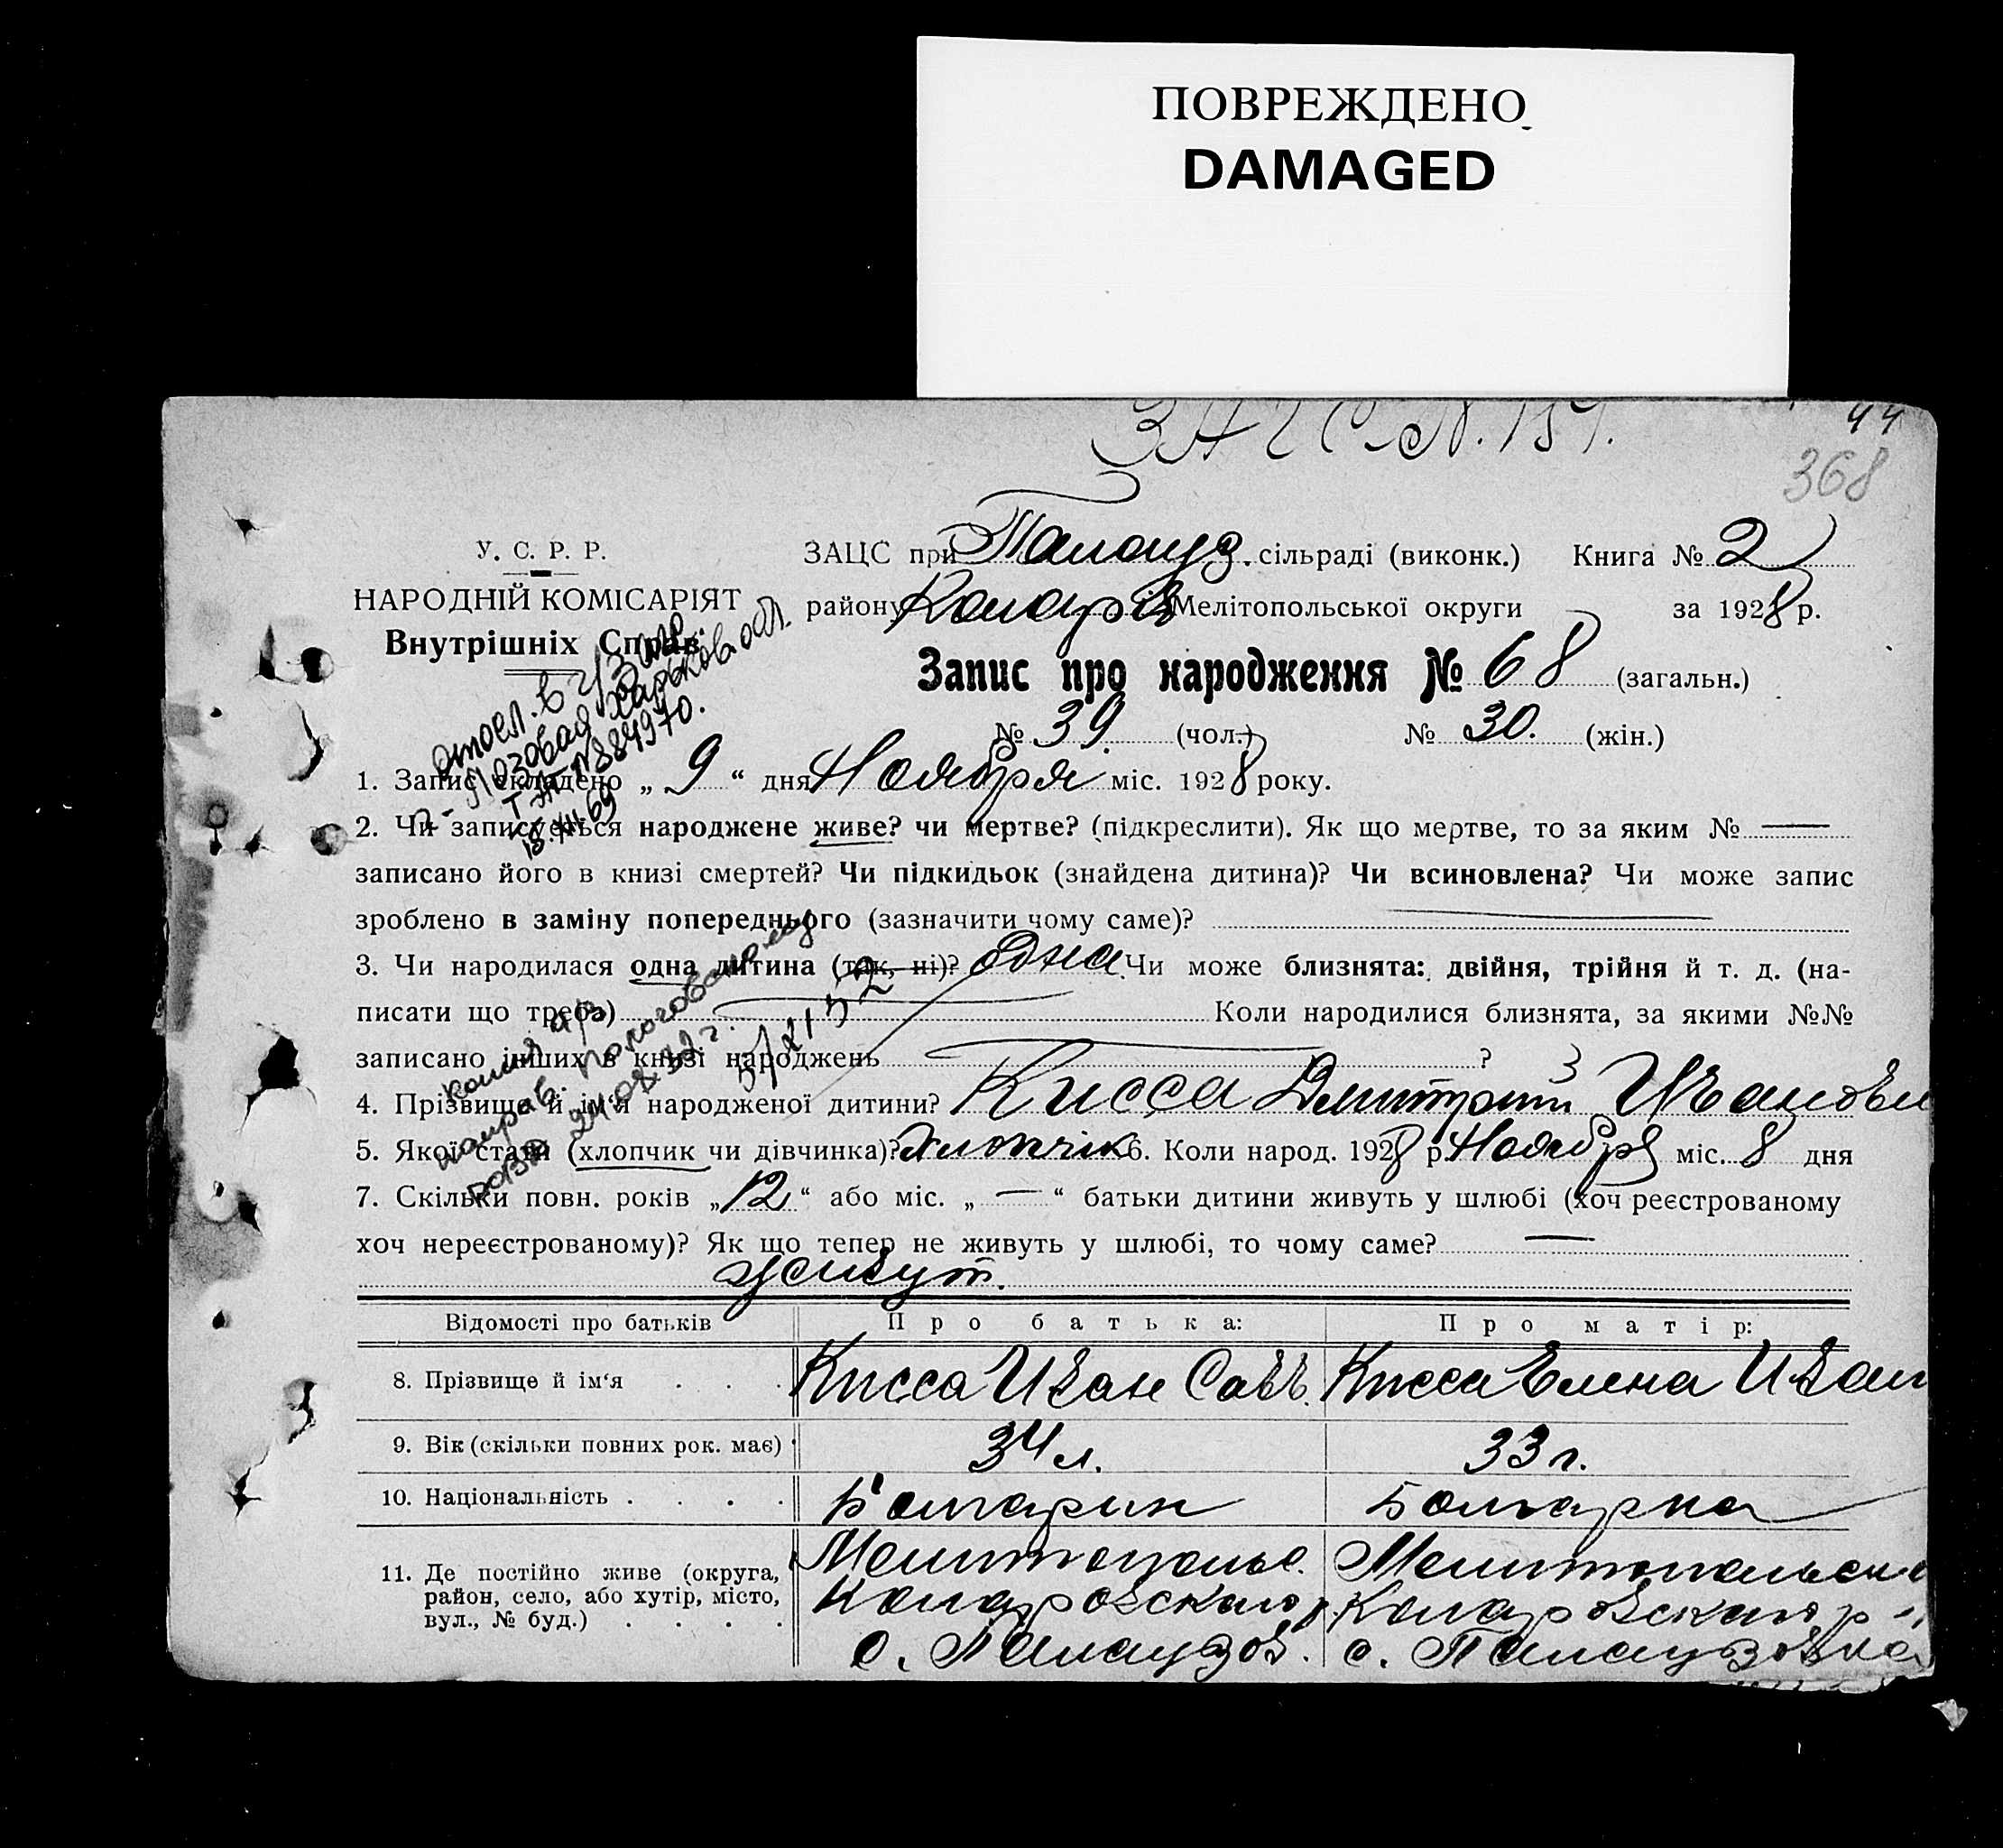 ПОВРЕЖДЕНО
DAMAGED
ЗАГС N. 151.
44
368
У. С. Р. Р.
НАРОДНІЙ КОМІСАРІЯТ
Внутрішніх Справ.
ЗАЦС при Палауз. сільраді (виконк.) Книга № 2
району Коларів Мелітопольської округи за 1928 р.
Запис про народження № 68 (загальн.)
№ 39 (чол.) № 30. (жін.)
отосл. в ч/з
п- Лозовая Харьков. обл.
№ 884970.
15.XII.69
1. Запис складено „ 9 “ дня Ноября міс. 1928 року.
2. Чи записується народжене живе? чи мертве? (підкреслити). Як що мертве, то за яким № —
записано його в книзі смертей? Чи підкидьок (знайдена дитина)? Чи всиновлена? Чи може запис
зроблено в заміну попереднього (зазначити чому саме)?
3. Чи народилася одна дитина (так, ні)? одна Чи може близнята: двійня, трійня й т. д. (на-
писати що треба) Коли народилися близнята, за якими №№
записано інших в книзі народжень ?
копия а/з
направ. Пологовскому
РОВД 24.08.
4. Прізвище й ім‘я народженої дитини? Кисса Дмитрий Иванови
5. Якої стати (хлопчик чи дівчинка)? Хлопчік 6. Коли народ. 1928 р. Ноября міс. 8 дня
7. Скільки повн. років „ 12 “ або міс. „ — “ батьки дитини живуть у шлюбі (хоч реєстрованому
хоч нереєстрованому)? Як що тепер не живуть у шлюбі, то чому саме? —
живут.
Відомості про батьків Про батька: Про матір:
8. Прізвище й ім‘я . . . Кисса Иван Савв. Кисса Елена Иван
9. Вік (скільки повних рок. має) 34 л. 33 г.
10. Національність . . . . Болгарин Болгарка
11. Де постійно живе (округа, район, село, або хутір, місто, вул., № буд.) . . . .
Мелитопольс. Мелитопольск
Коларовского р Коларовского р
с. Палаузов. с. Палаузовка